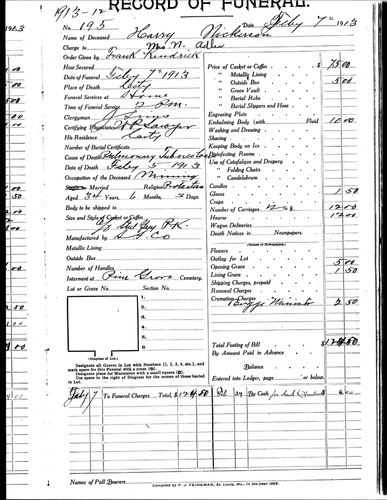 1913-12
RECORD OF FUNERAL.
No. 193 Date Feby 7th 1913
Name of Deceased Harry Nickerson
Charge to Mrs N. Adler
Order Given by Frank Kendrick
How Secured
Date of Funeral Feby 7th 1913
Place of Death City
Funeral Services at Home
Time of Funeral Service 2 P.M.
Clergyman
Certifying Physician Sawyer
His Residence City
Number of Burial Certificate
Cause of Death Pulmonary Tuberculosis
Date of Death Feby 5 1913
Occupation of the Deceased Mining
Single or Married Religion Protestant
Aged 34 Years 6 Months Days
Body to be shipped to
Size and Style of Casket or Coffin
Manufactured by
Metallic Lining
Outside Box
Number of Handles
Interment at Pine Grove Cemetery.
Lot or Grave No. Section No.
1.
2.
3.
4.
5.
6.
(Diagram of Lot.)
Designate all Graves in Lot with Numbers (1, 2, 3, 4, etc.), and
mark space for this Funeral with a cross
Designate place for Monument with a small square
Use space to the right of Diagram for the names of those buried
in Lot.
Price of Casket or Coffin $ 75.00
" Metallic Lining
" Outside Box 5.00
" Grave Vault
" Burial Robe
" Burial Slippers and Hose
Engraving Plate
Embalming Body (with Fluid 10.00
Washing and Dressing
Shaving
Keeping Body on Ice
Disinfecting Rooms
Use of Catafalque and Drapery
" Folding Chairs
" Candelabrum
Candles
Gloves 1.50
Crape
Number of Carriages 12.00
Hearse 12.00
Wagon Deliveries
Death Notices in Newspapers.
(Names of Newspapers.)
Flowers
Outlay for Lot 5.00
Opening Grave 1.50
Lining Grave
Shipping Charges, prepaid
Removal Charges
Cremation Charges
2.50
Total Footing of Bill $124.50
By Amount Paid in Advance
Balance
Entered into Ledger, page or below.
Feby 7 To Funeral Charges Total, $124.50
By Cash
Names of Pall Bearers
Compiled by F. J. FEINEMAN, St. Louis, Mo., in the year 1902.